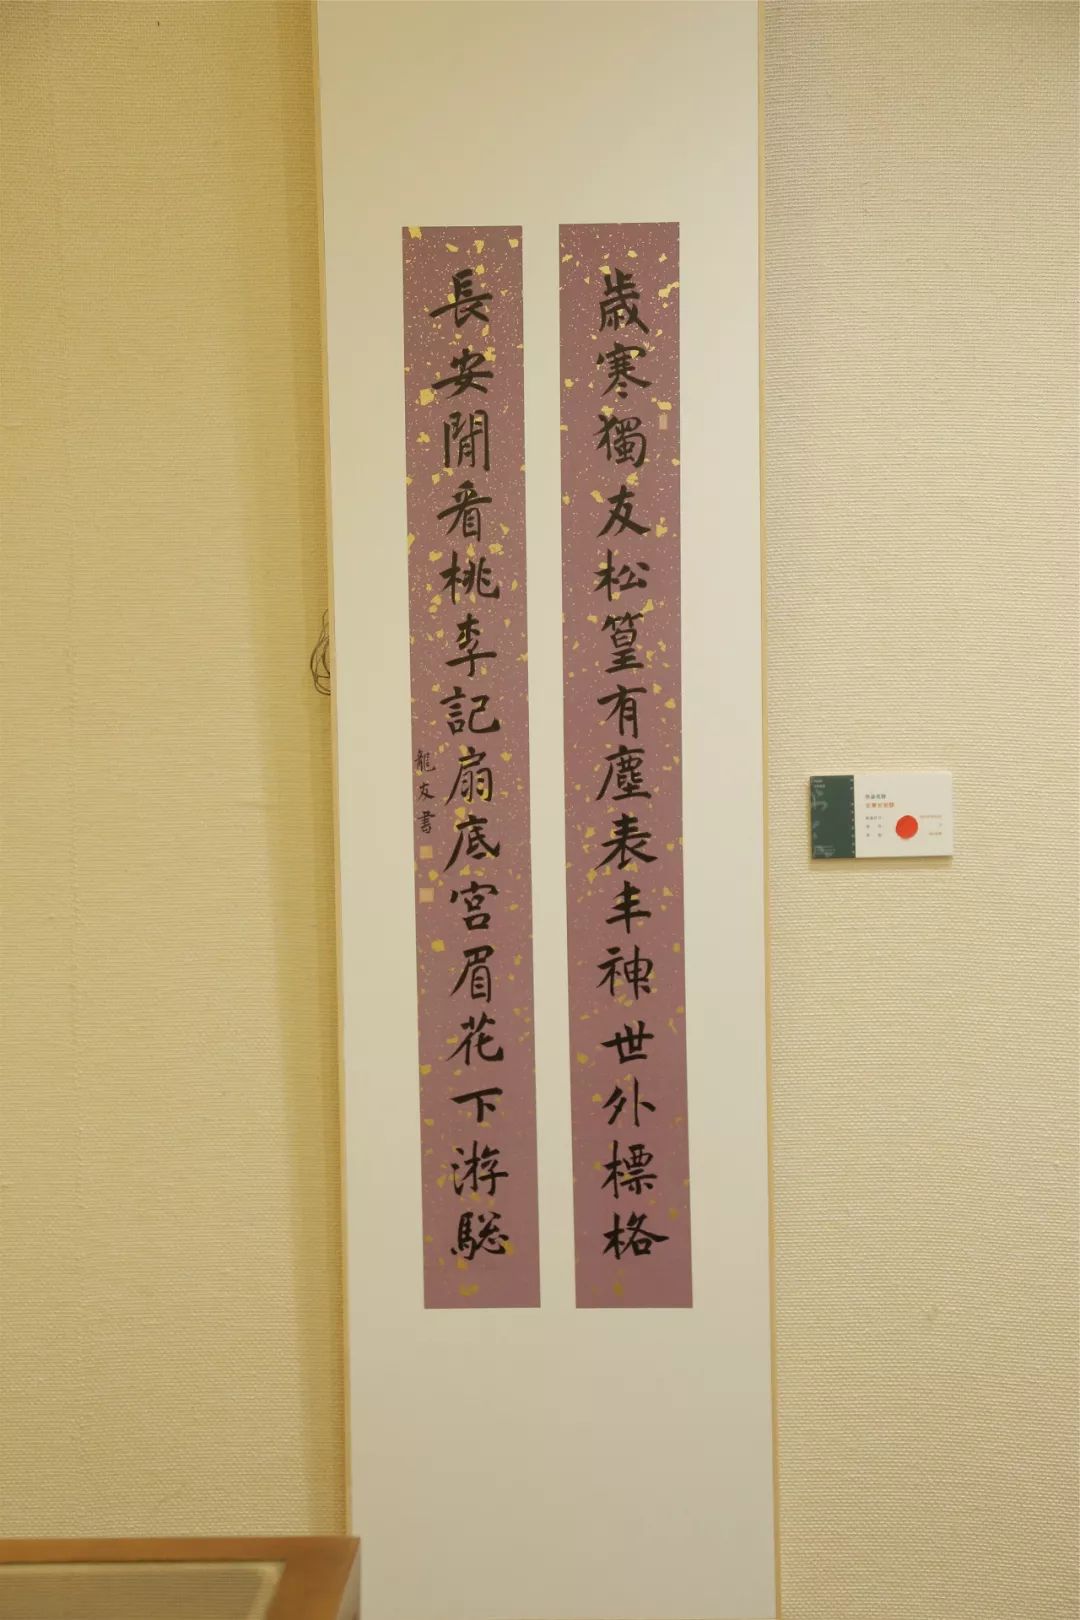 歲寒獨友松篁有塵表丰神世外標格
長安閒看桃李記扇底宮眉花下游驄
龍友書